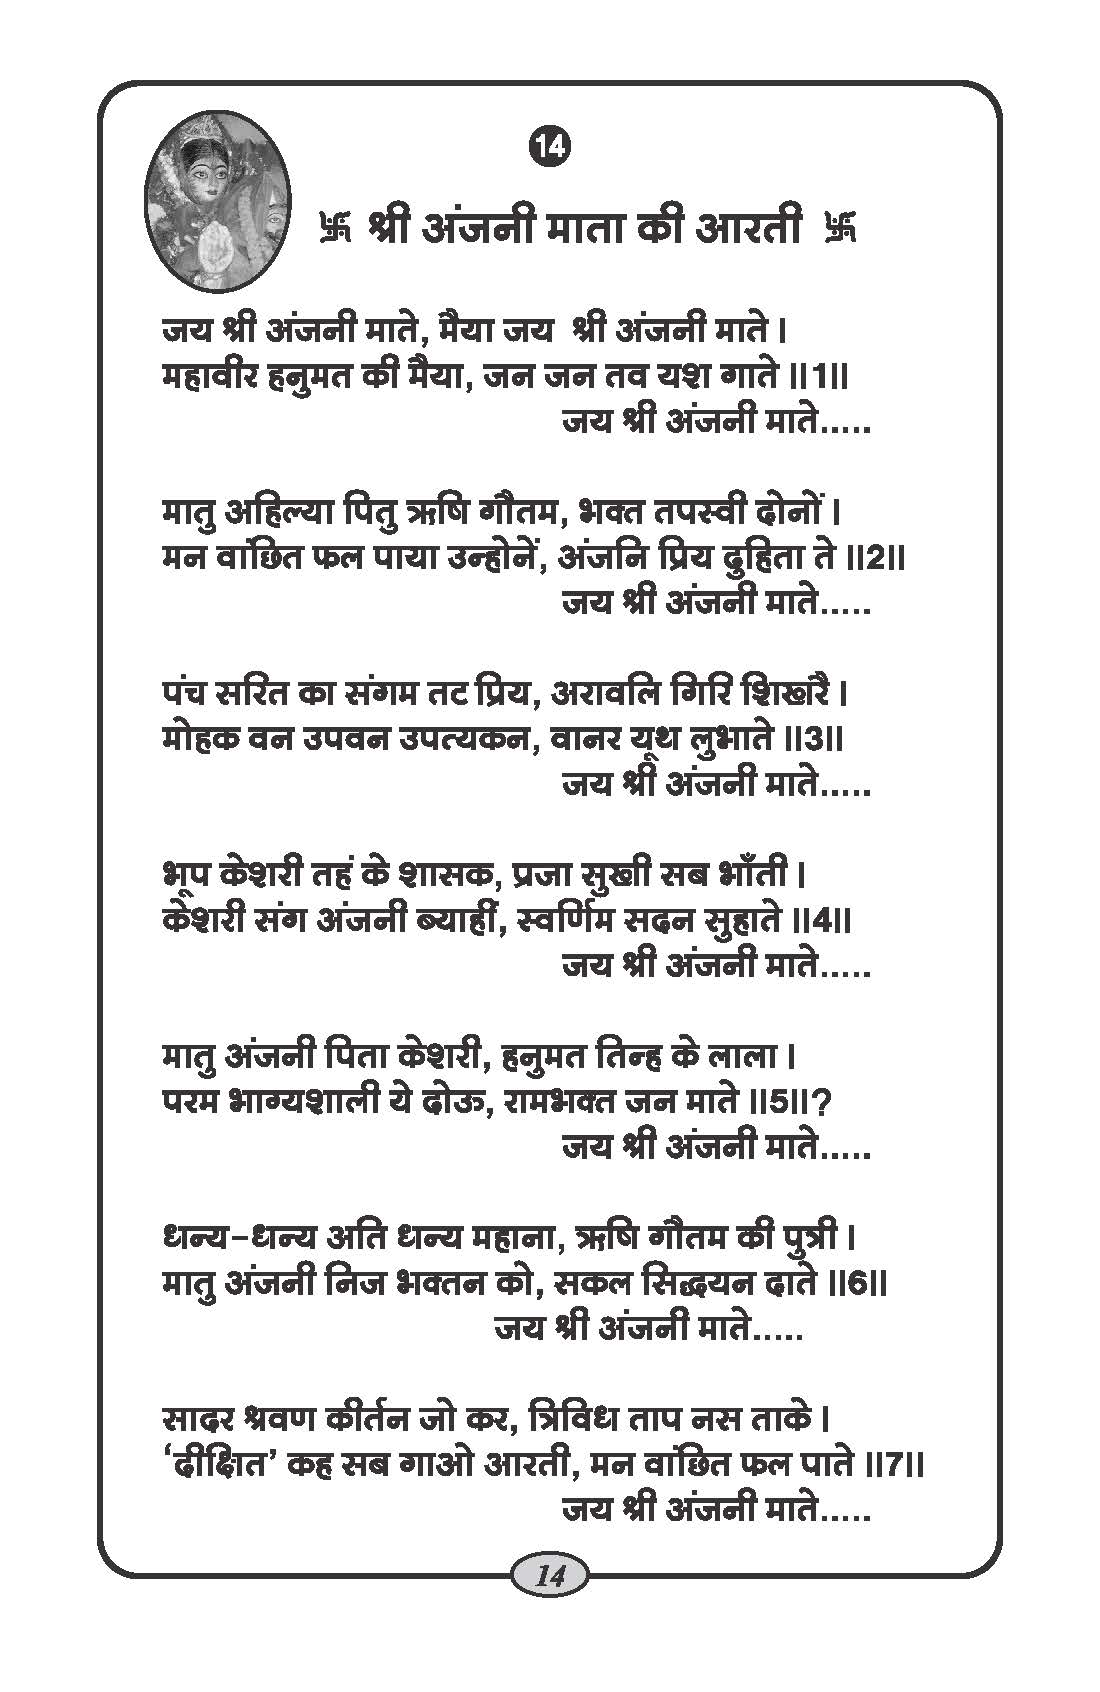 14
卐 श्री अंजनी माता की आरती 卐
जय श्री अंजनी माते, मैया जय श्री अंजनी माते ।
महावीर हनुमत की मैया, जन जन तव यश गाते ॥1॥
जय श्री अंजनी माते.....
मातु अहिल्या पितु ऋषि गौतम, भक्त तपस्वी दोनों ।
मन वांछित फल पाया उन्होनें, अंजनि प्रिय दुहिता ते ॥2॥
जय श्री अंजनी माते.....
पंच सरित का संगम तट प्रिय, अरावलि गिरि शिखरै ।
मोहक वन उपवन उपत्यकन, वानर यूथ लुभाते ॥3॥
जय श्री अंजनी माते.....
भूप केशरी तहं के शासक, प्रजा सुखी सब भाँती ।
केशरी संग अंजनी ब्याहीं, स्वर्णिम सदन सुहाते ॥4॥
जय श्री अंजनी माते.....
मातु अंजनी पिता केशरी, हनुमत तिन्ह के लाला ।
परम भाग्यशाली ये दोऊ, रामभक्त जन माते ॥5॥?
जय श्री अंजनी माते.....
धन्य-धन्य अति धन्य महाना, ऋषि गौतम की पुत्री ।
मातु अंजनी निज भक्तन को, सकल सिद्धयन दाते ॥6॥
जय श्री अंजनी माते.....
सादर श्रवण कीर्तन जो कर, त्रिविध ताप नस ताके ।
‘दीक्षित’ कह सब गाओ आरती, मन वांछित फल पाते ॥7॥
जय श्री अंजनी माते.....
14